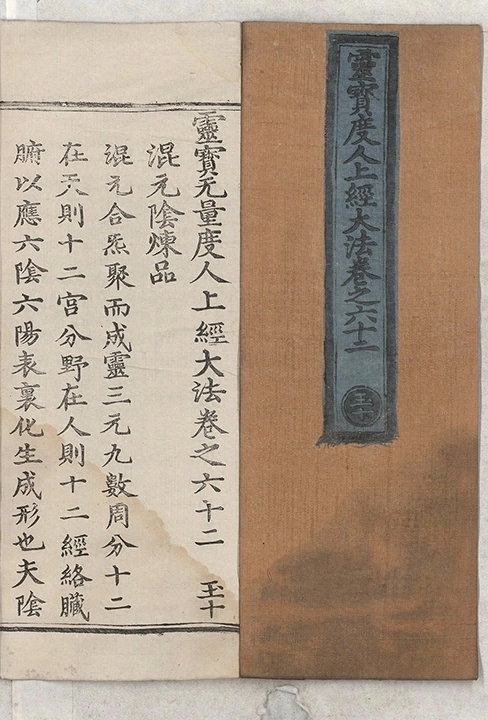 靈寶度人上經大法卷之六十二
玉十
靈寶无量度人上經大法卷之六十二 玉十
混元陰煉品
混元合炁聚而成靈三元九數周分十二
在天則十二宮分野在人則十二經絡臟
腑以應六陰六陽表裏化生成形也夫陰